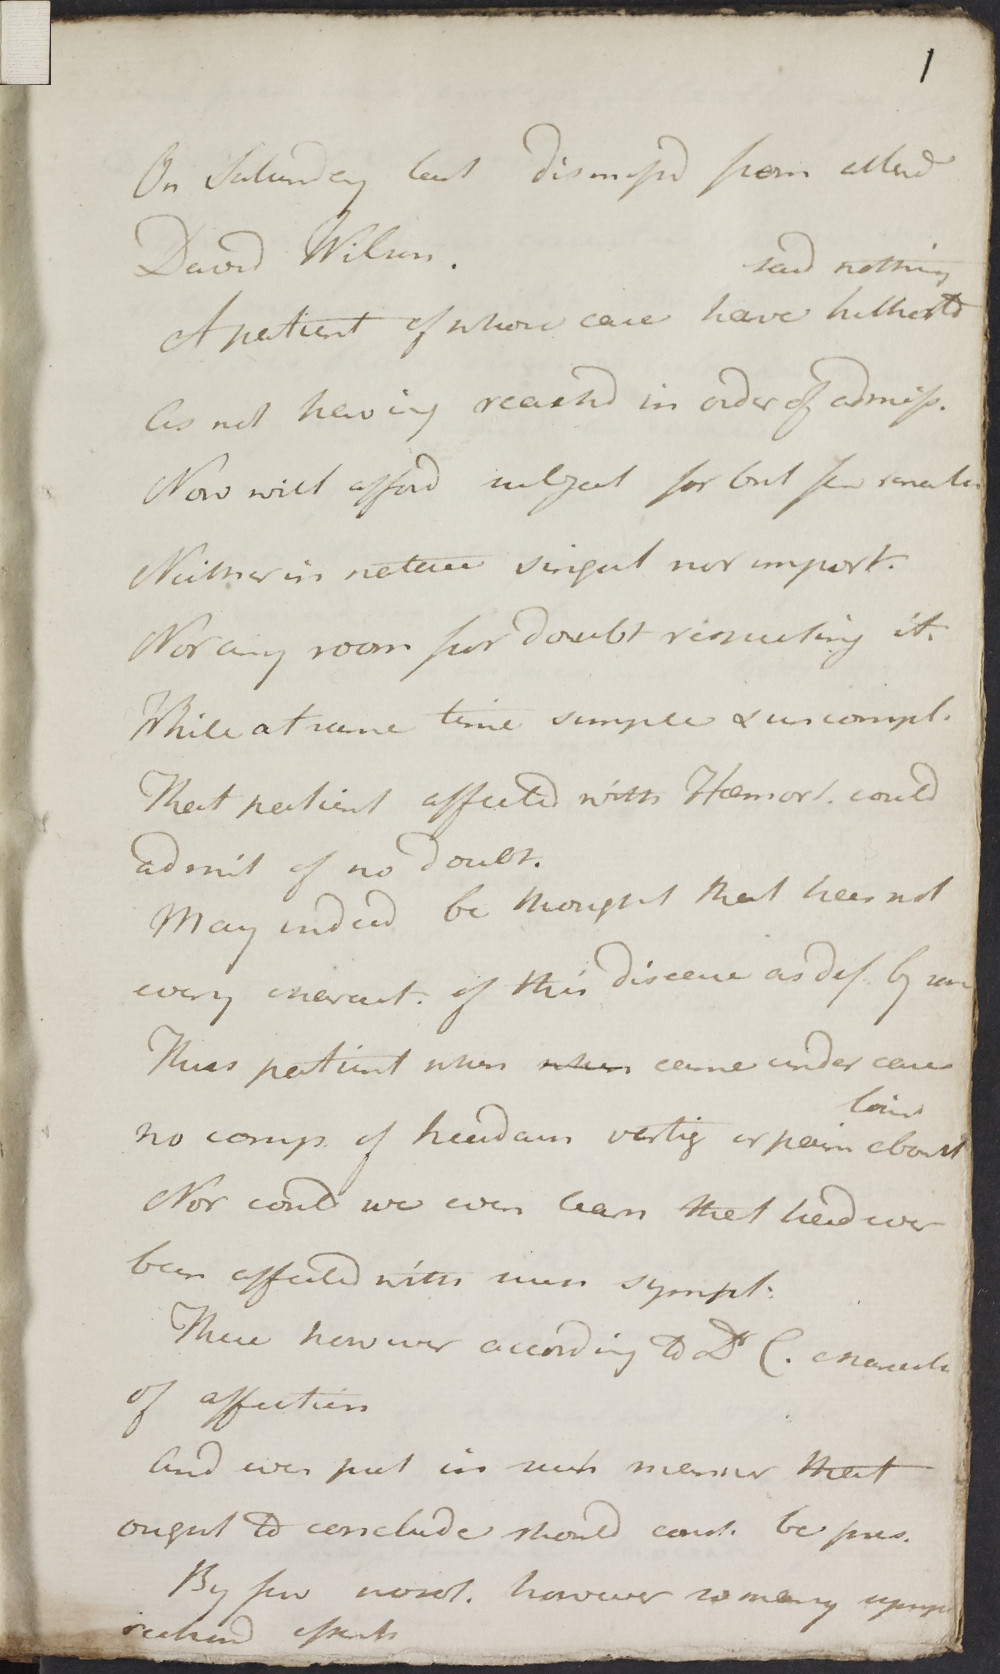 1
On Saturday last dismissd from attend
David Wilson.
said nothing
A patient of whose case have hitherto
As not having reachd in order of admiss.
Now will afford subject for but few remarks
Neither in nature singul nor import.
Nor any room for doubt respecting it.
While at same time simple & uncompl.
That patient affected with Hæmorr. could
admit of no doubt.
May indeed be thought that has not
every charact. of this disease as def. by
This patient when when came under care
loins
no comp. of headach vertig or pain about
Nor could we even learn that had ever
been affected with such sympt.
These however according to Dr C. characters
of affection
And even put in such manner that
ought to conclude should const. be pres.
By few nosol. however so many symp